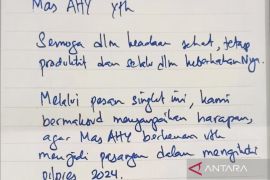 Mas AHY Yth
Semoga dlm keadaan sehat, tetap
produktif dan selalu dlm keberkahanNya.
Melalui pesan singkat ini, kami
bermaksud menyampaikan harapan,
agar Mas AHY berkenan utk
menjadi pasangan dalam mengikuti
pilpres 2024.
ANTARA